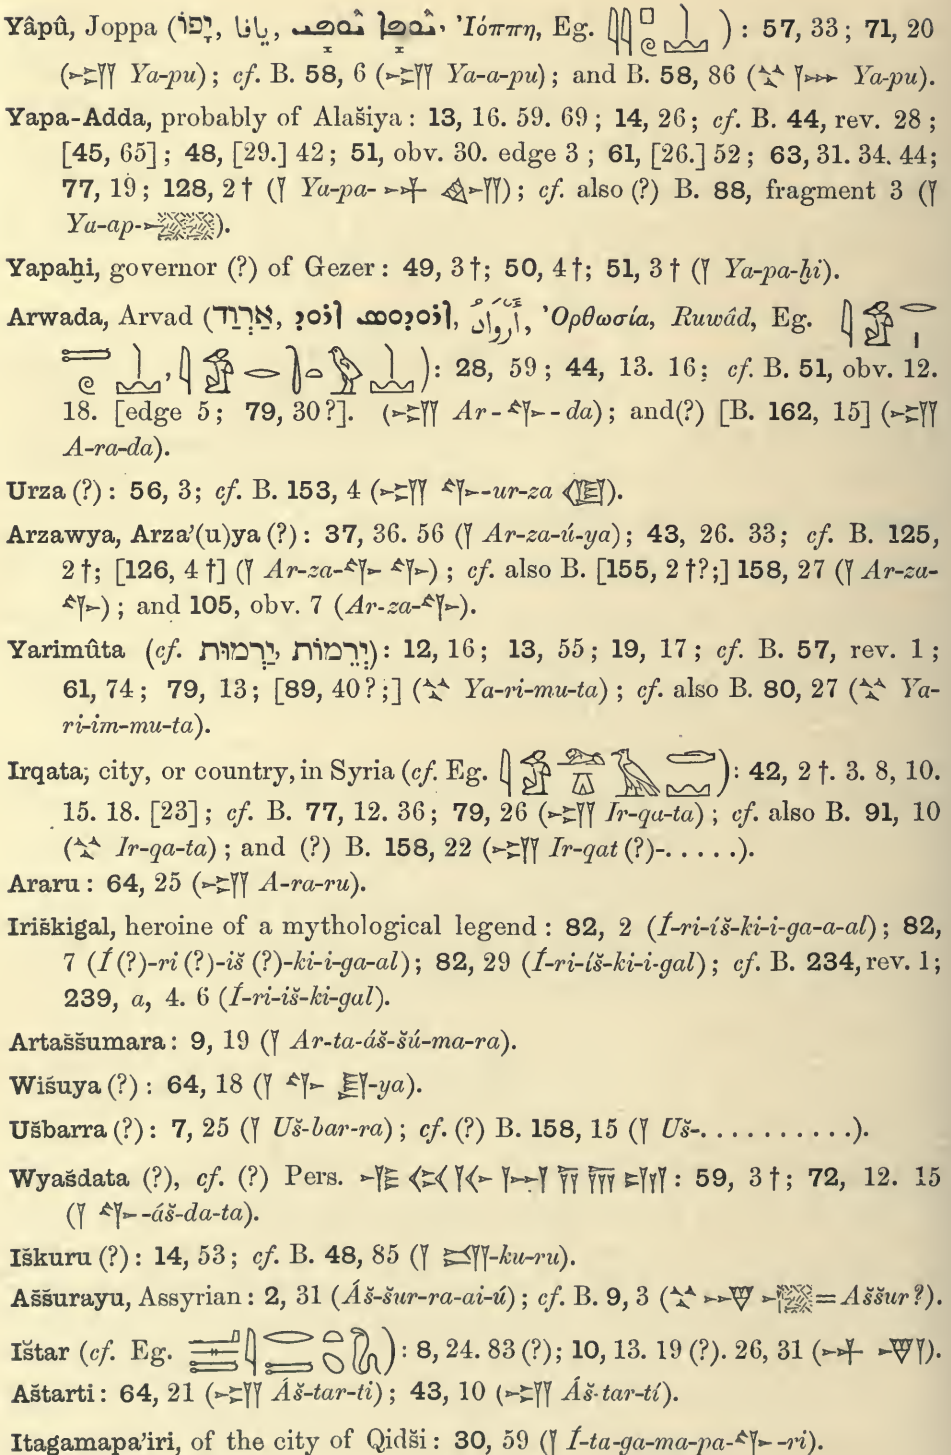 Yâpû, Joppa (יָפוֹ, يافا, ܝܘܦܐ ܝܘܦܝ, Ἰόππη, Eg. ) : 57, 33; 71, 20
(𒌷 Ya-pu); cf. B. 58, 6 (𒌷 Ya-a-pu); and B. 58, 86 (𒆳 Ya-pu).
Yapa-Adda, probably of Alašiya: 13, 16. 59. 69; 14, 26; cf. B. 44, rev. 28;
[45, 65]; 48, [29.] 42; 51, obv. 30. edge 3; 61, [26.] 52; 63, 31. 34. 44;
77, 19; 128, 2† (𒁹 Ya-pa-𒀭 𒅎); cf. also (?) B. 88, fragment 3 (𒁹
Ya-ap-).
Yapaḫi, governor (?) of Gezer: 49, 3†; 50, 4†; 51, 3† (𒁹 Ya-pa-ḫi).
Arwada, Arvad (אַרְוַד, أَرْوَادُ, Ὀρθωσία, Ruwâd, Eg.
): 28, 59; 44, 13. 16; cf. B. 51, obv. 12.
18. [edge 5; 79, 30?]. (𒌷 Ar-𒉿-da); and(?) [B. 162, 15] (𒌷
A-ra-da).
Urza (?): 56, 3; cf. B. 153, 4 (𒌷 𒉿-ur-za 𒆠).
Arzawya, Arza’(u)ya (?): 37, 36. 56 (𒁹 Ar-za-ú-ya); 43, 26. 33; cf. B. 125,
2†; [126, 4†] (𒁹 Ar-za-𒉿 𒉿); cf. also B. [155, 2†?;] 158, 27 (𒁹 Ar-za-
𒉿); and 105, obv. 7 (Ar-za-𒉿).
Yarimûta (cf. יְרֵמוֹת, יַרְמוּת): 12, 16; 13, 55; 19, 17; cf. B. 57, rev. 1;
61, 74; 79, 13; [89, 40?;] (𒆳 Ya-ri-mu-ta); cf. also B. 80, 27 (𒆳 Ya-
ri-im-mu-ta).
Irqata, city, or country, in Syria (cf. Eg. ): 42, 2†. 3. 8, 10.
15. 18. [23]; cf. B. 77, 12. 36; 79, 26 (𒌷 Ir-qa-ta); cf. also B. 91, 10
(𒆳 Ir-qa-ta); and (?) B. 158, 22 (𒌷 Ir-qat (?)-. . . . .).
Araru: 64, 25 (𒌷 A-ra-ru).
Iriškigal, heroine of a mythological legend: 82, 2 (Í-ri-íš-ki-i-ga-a-al); 82,
7 (Í (?)-ri (?)-iš (?)-ki-i-ga-al); 82, 29 (Í-ri-íš-ki-i-gal); cf. B. 234, rev. 1;
239, a, 4. 6 (Í-ri-iš-ki-gal).
Artaššumara: 9, 19 (𒁹 Ar-ta-áš-šú-ma-ra).
Wišuya (?): 64, 18 (𒁹 𒉿 -ya).
Ušbarra (?): 7, 25 (𒁹 Uš-bar-ra); cf. (?) B. 158, 15 (𒁹 Uš-. . . . . . . . . .).
Wyašdata (?), cf. (?) Pers. : 59, 3†; 72, 12. 15
(𒁹 𒉿-áš-da-ta).
Iškuru (?): 14, 53; cf. B. 48, 85 (𒁹 -ku-ru).
Aššurayu, Assyrian: 2, 31 (Áš-šur-ra-ai-ú); cf. B. 9, 3 (𒆳 = Aššur?).
Ištar (cf. Eg. ): 8, 24. 83 (?); 10, 13. 19 (?). 26, 31 (𒀭 ).
Aštarti: 64, 21 (𒌷 Áš-tar-ti); 43, 10 (𒌷 Áš-tar-tí).
Itagamapa’iri, of the city of Qidši: 30, 59 (𒁹 Í-ta-ga-ma-pa-𒉿-ri).